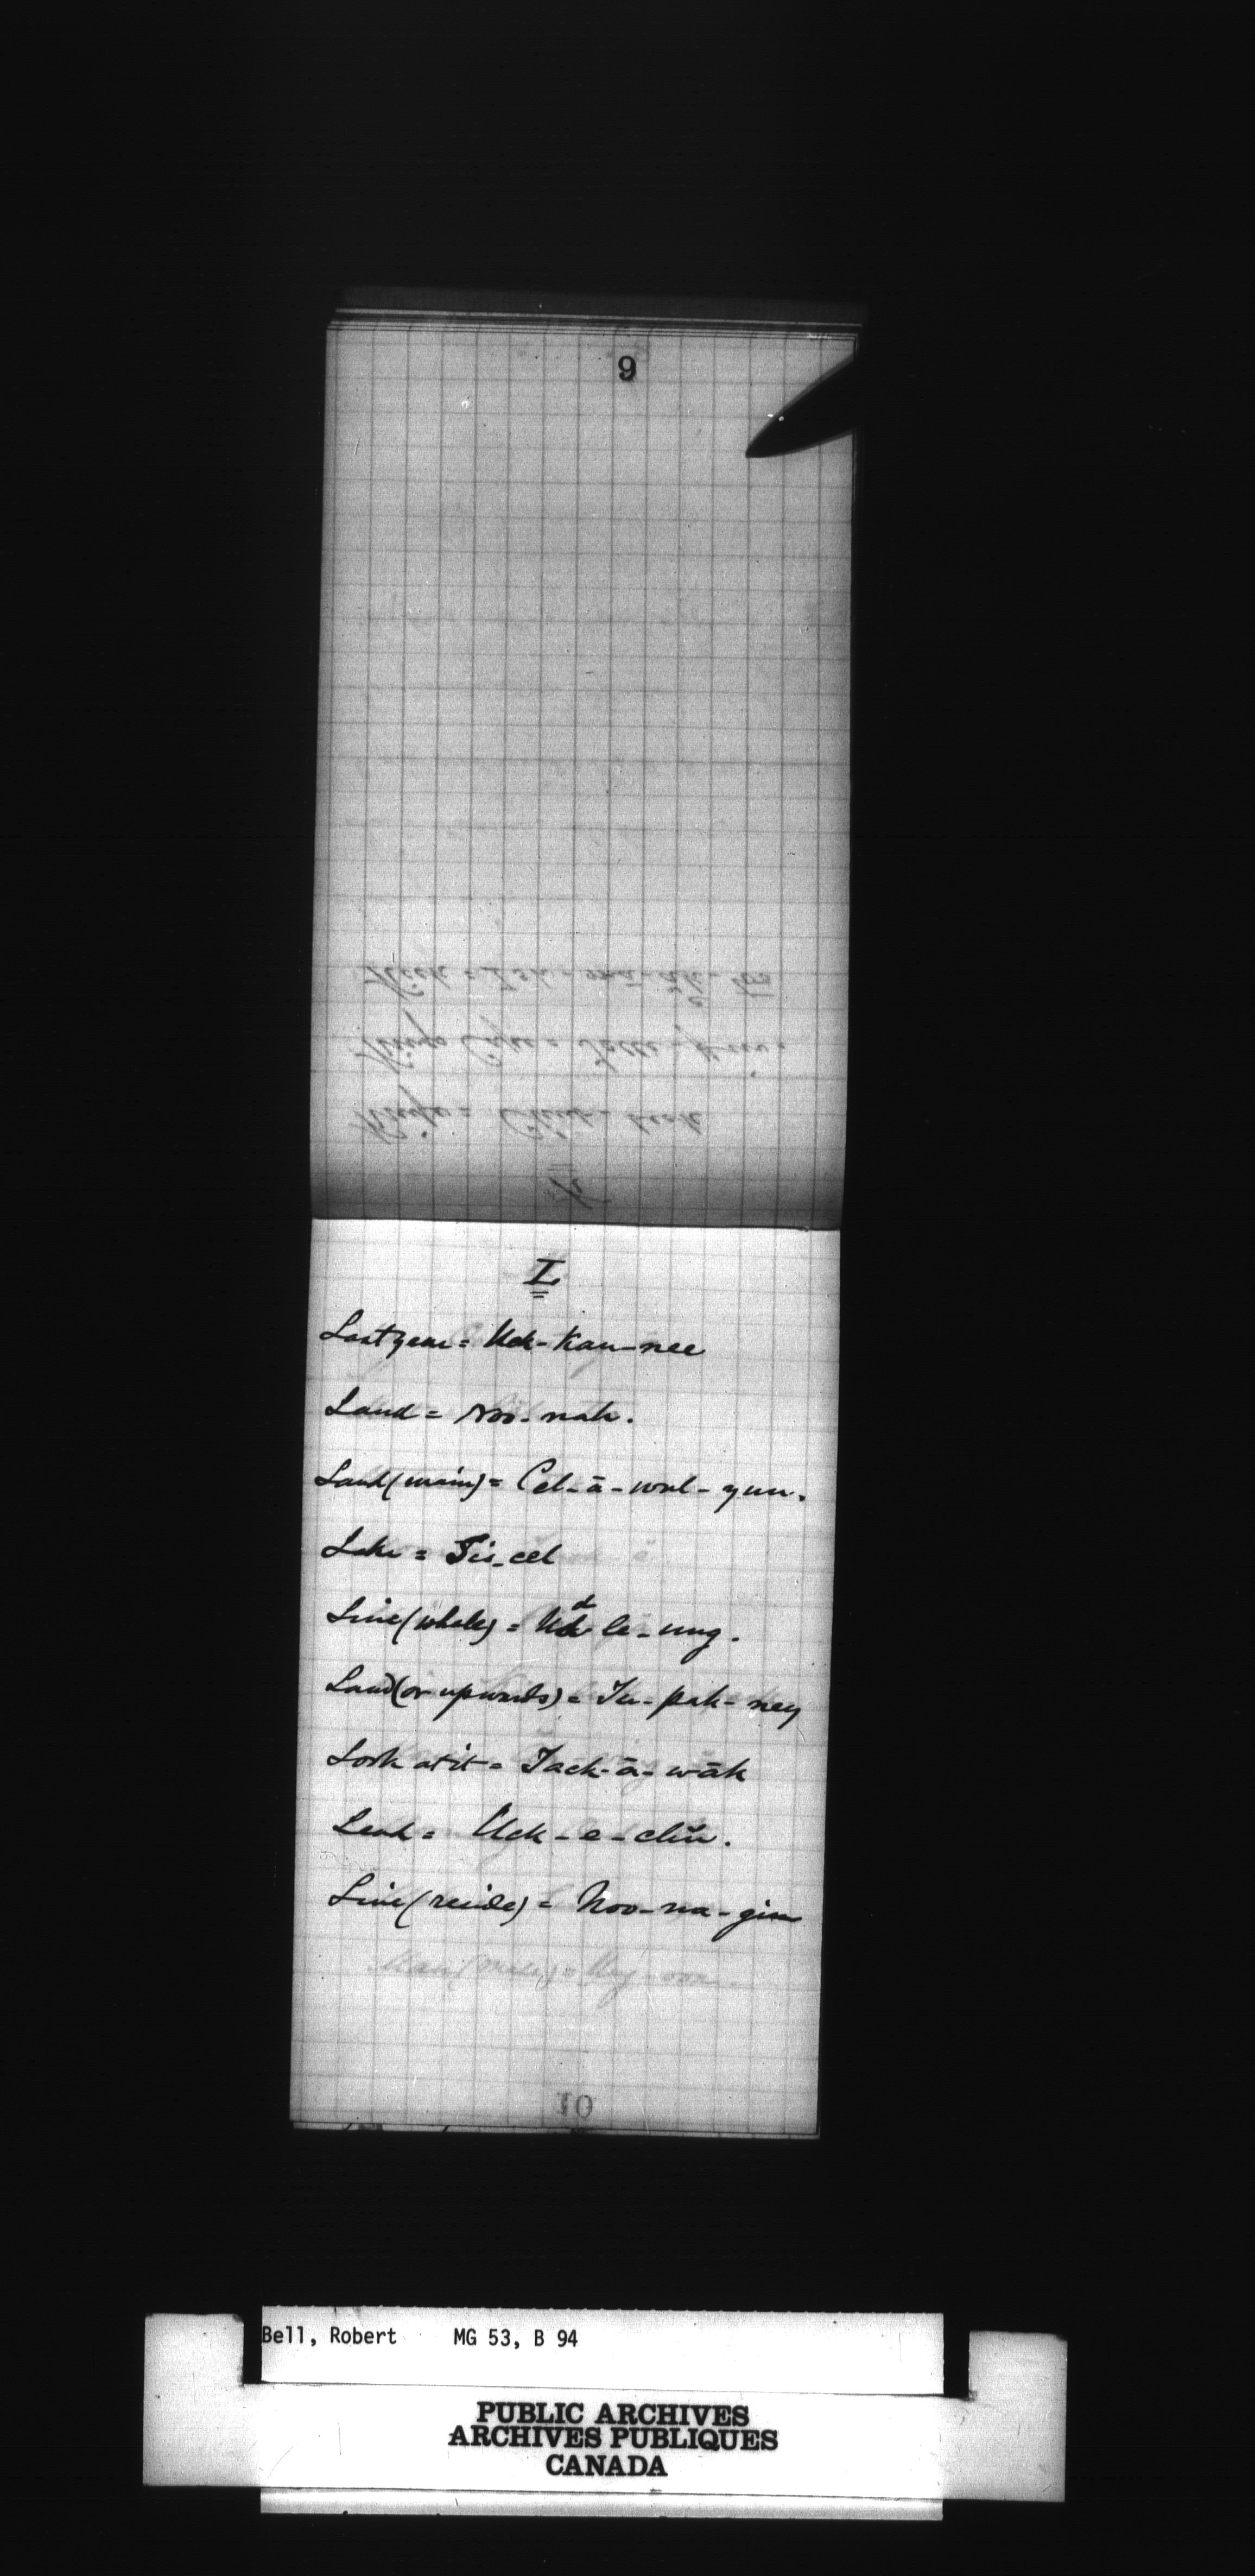 9
L
Last year = Uck-kau-nee
Land = Noo-nah.
Land (main) = Cel-ā-wul-yun.
Lake = Tis-cel
Line (whale) = Uck le-ung.
Land (or upwards) = Tu-pak-ney
Look at it = Tack-ā-wāk
Lead = Uck-e-chŭ.
Live (reside) = Noo-na-gin
Man (male) = Ung-oon.
10
Bell, Robert MG 53, B 94
PUBLIC ARCHIVES
ARCHIVES PUBLIQUES
CANADA